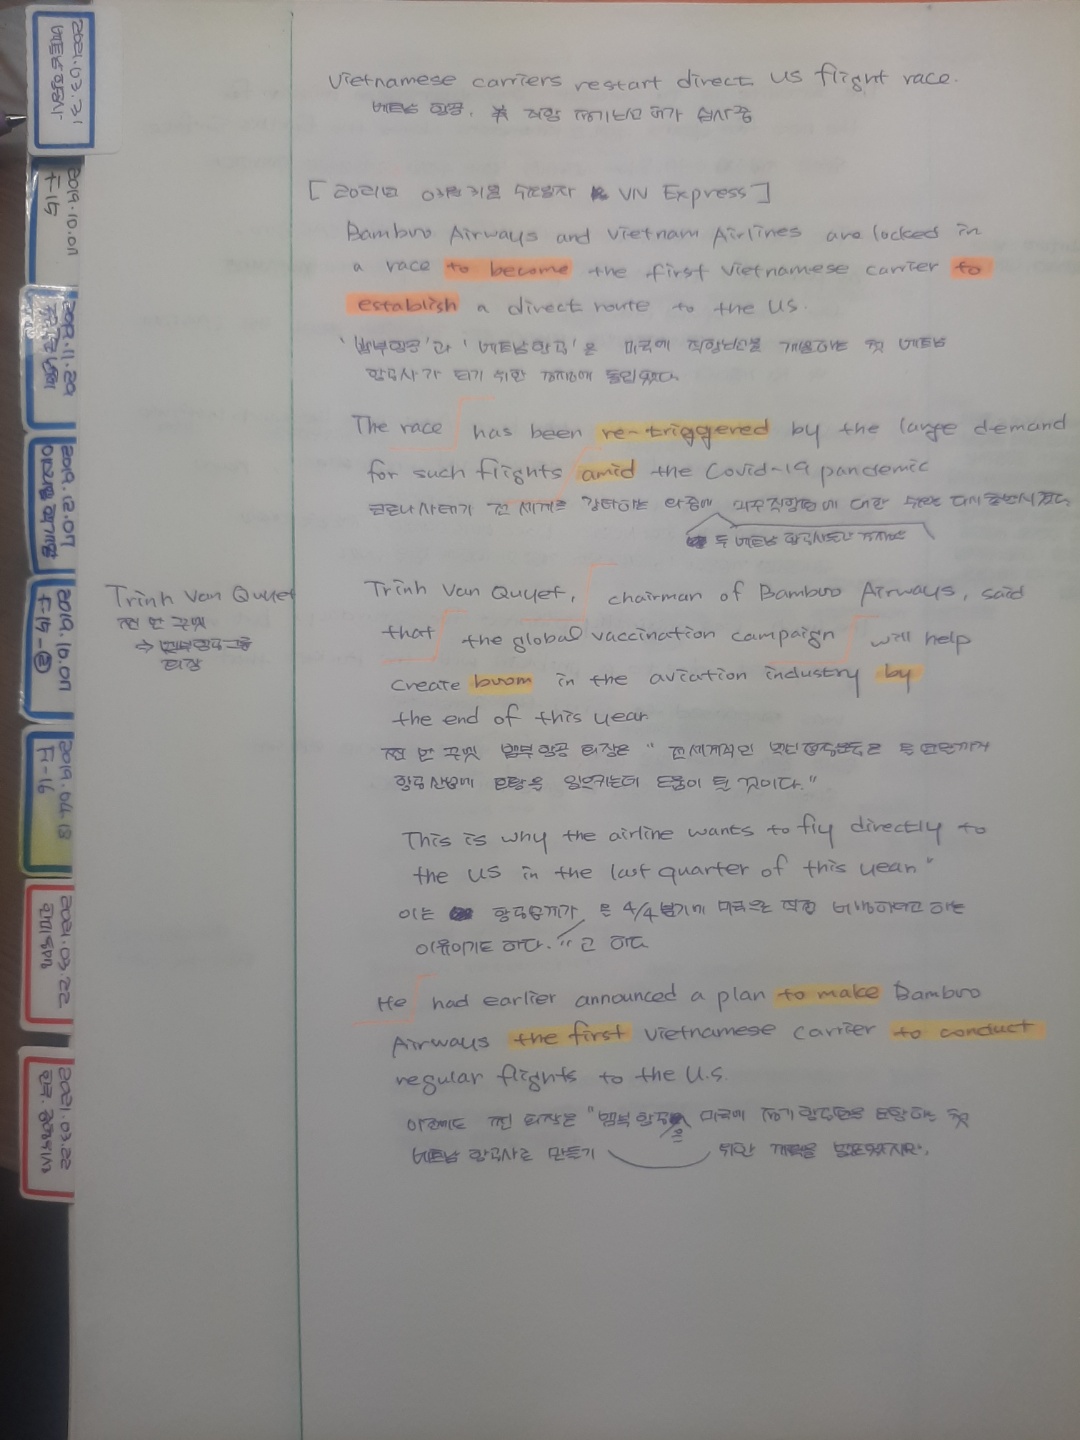 Vietnamese carriers restart direct US flight race.
베트남 항공, 美 직항 정기노선 허가 심사중
[2021년 03월 31일 수요일자 VN Express]
Bamboo Airways and Vietnam Airlines are locked in
a race to become the first Vietnamese carrier to
establish a direct route to the US.
'뱀부항공'과 '베트남항공'은 미국에 직항노선을 개설하는 첫 베트남
항공사가 되기 위한 경쟁에 돌입했다.
The race has been re-triggered by the large demand
for such flights amid the Covid-19 pandemic
코로나사태가 전 세계를 강타하는 와중에 미주직항등에 대한 수요는 다시 증변시켰다
두 베트남 항공사들간 경쟁은
Trinh Van Quyet, chairman of Bamboo Airways, said
that the global vaccination campaign will help
create boom in the aviation industry by
the end of this year
찐 반 꾸엣 뱀부항공 회장은 "전세계적인 백신접종운동은 올 연말까지
항공산업에 호황을 일으키는데 도움이 될 것이다."
This is why the airline wants to fly directly to
the US in the last quarter of this year"
이는 항공업계가 올 4/4분기에 미국으로 직접 비행하려고 하는
이유이기도 하다."고 하다
He had earlier announced a plan to make Bamboo
Airways the first Vietnamese carrier to conduct
regular flights to the U.S.
이전에도 찐 회장은 "뱀부항공을 미국에 정기항공편을 운항하는 첫
베트남 항공사로 만들기 위한 계획을 발표했지만.
Trinh Van Quyet
찐 반 꾸엣
→ 뱀부항공그룹
회장
2021.03.31
베트남항공사
2019.10.07
F-15
2012.11.29
2019.12.07
2019.10.07
F-15-②
2019.04.13
F-16
2021.03.22
2021.03.22